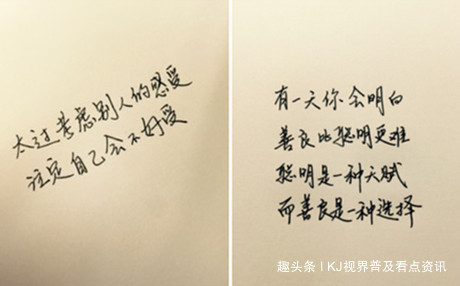 太过考虑别人的感受
注定自己会不好受
有一天你会明白
善良比聪明更难
聪明是一种天赋
而善良是一种选择
趣头条 | KJ视界普及看点资讯